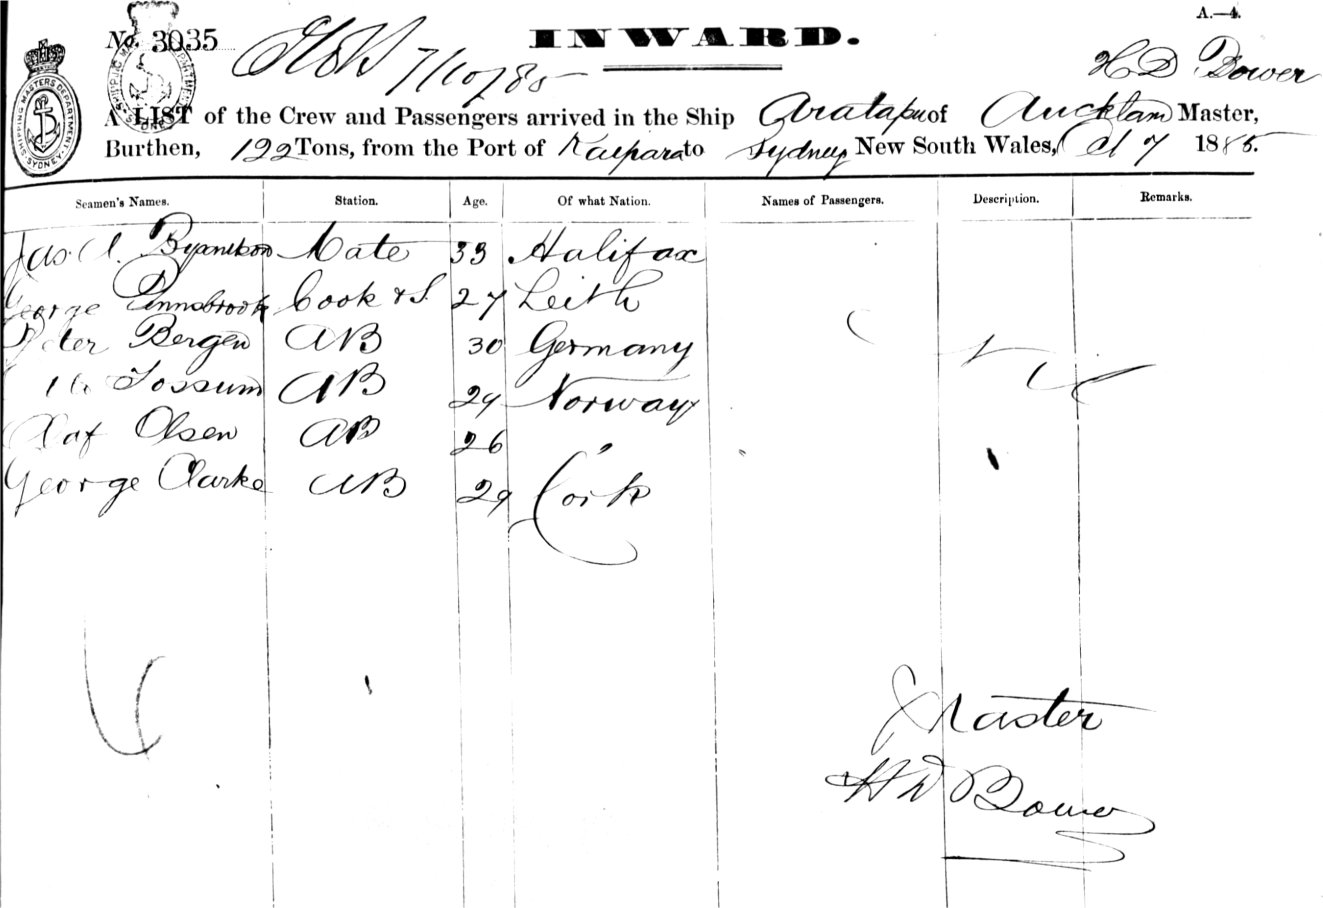 A.—4.
No. 3035
INWARD.
7/10/85
H D Bower
A LIST of the Crew and Passengers arrived in the Ship Aratapu of Auckland Master,
Burthen, 122 Tons, from the Port of Kaipara to Sydney New South Wales, Oct 7 1885.
SHIPPING MASTERS DEPARTMENT
SYDNEY
Seamen's Names. Station. Age. Of what Nation. Names of Passengers. Description. Remarks.
Jas. A. Mate 33 Halifax
George Cook & S. 27 Leith
Peter Bergen AB 30 Germany
Tossum AB 29 Norway
Olaf Olsen AB 26 "
George Clarke AB 29 Cork
6
Master
H D Bower